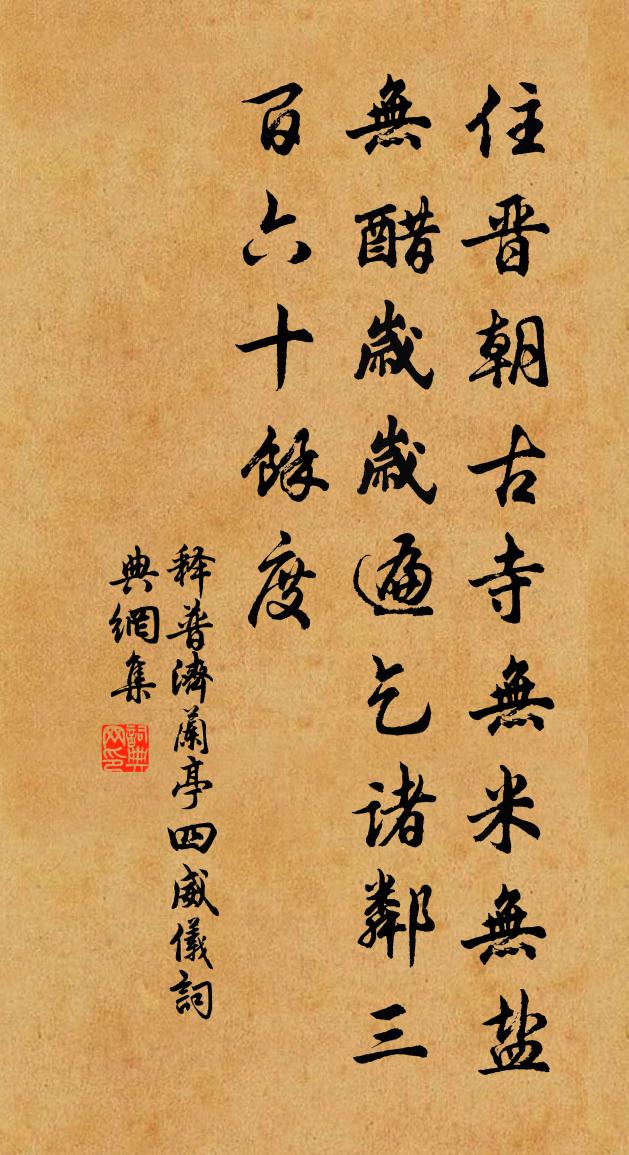 住晋朝古寺無米無盐
無醋歳歳遍乞诸鄰三
百六十餘度
释普濟蘭亭四威儀詞
典網集
詞典網印